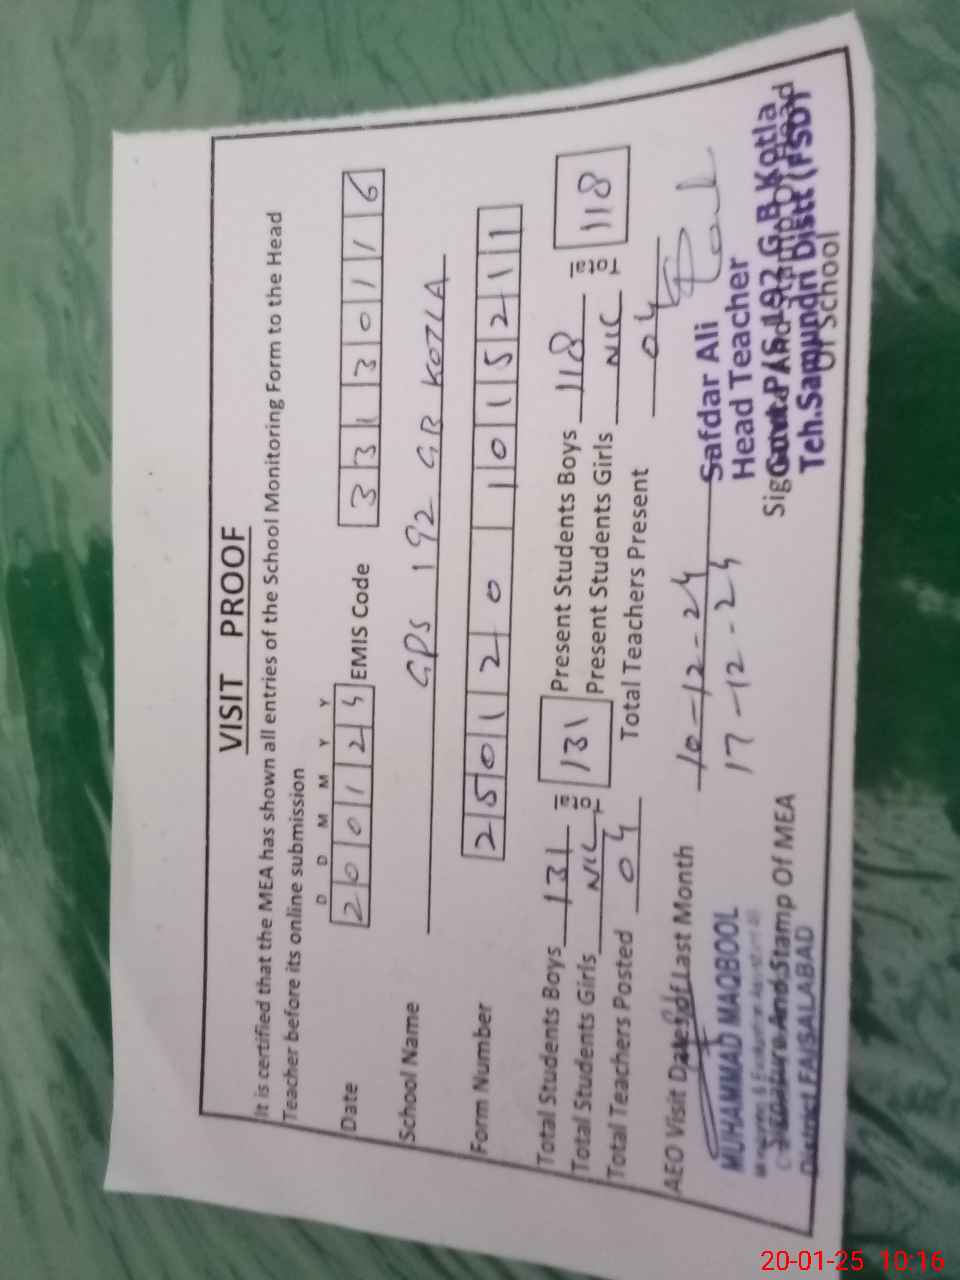 VISIT PROOF
It is certified that the MEA has shown all entries of the School Monitoring Form to the Head
Teacher before its online submission
D D M M Y Y
Date 200124 EMIS Code 33130116
School Name GPS 192 GB KOTLA
Form Number 2501201015211
Total Students Boys 131 Total 131 Present Students Boys 118 Total 118
Total Students Girls NIL Present Students Girls NIL
Total Teachers Posted 04 Total Teachers Present 04
AEO Visit Dates of Last Month 10-12-24
17-12-24
MUHAMMAD MAQBOOL
Signature And Stamp Of MEA
District FAISALABAD
Safdar Ali
Head Teacher
Govt. P/S 192 G.B Kotla
Teh.Samundri Distt (FSD)
Signature And Stamp Of Head
Of School
20-01-25 10:16